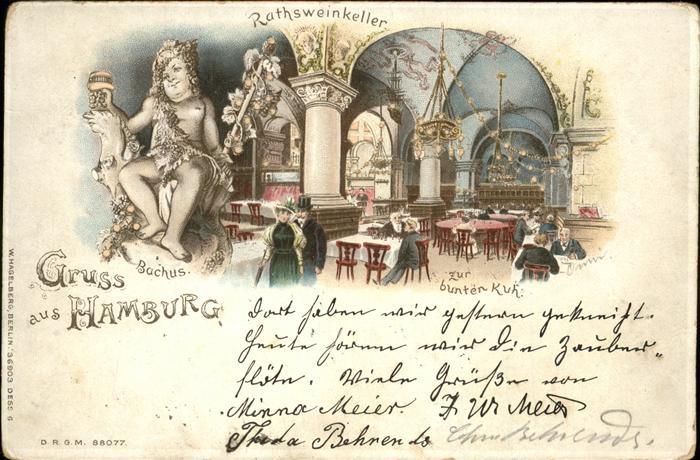 Rathsweinkeller
Bachus.
zur
bunten Kuh.
Gruss
aus HAMBURG
Dort haben wir gestern gekneipt.
Heute hören wir die Zauber„
flöte. Viele Grüße von
Minna Meier. F W Meier
Theda Behrends Chrn Behrends.
W. HAGELBERG, BERLIN. 36903 DESS 6
D. R. G. M. 88077.